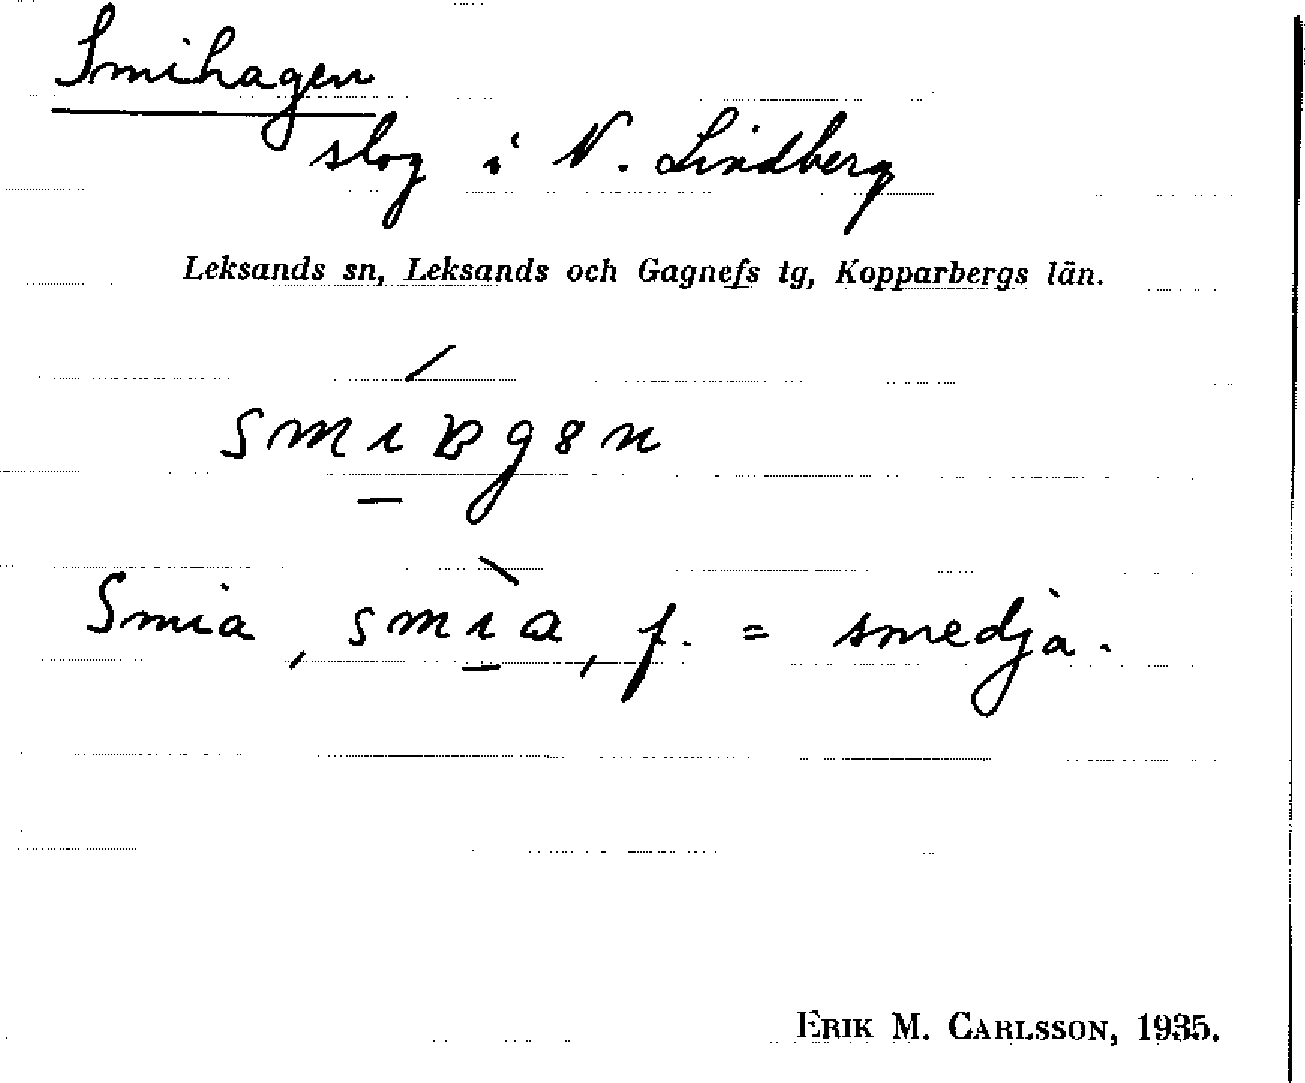 Smihagen
slog i N. Lindberg
Leksands sn, Leksands och Gagnefs tg, Kopparbergs län.
Smia, , f. = smedja.
ERIK M. CARLSSON, 1935.